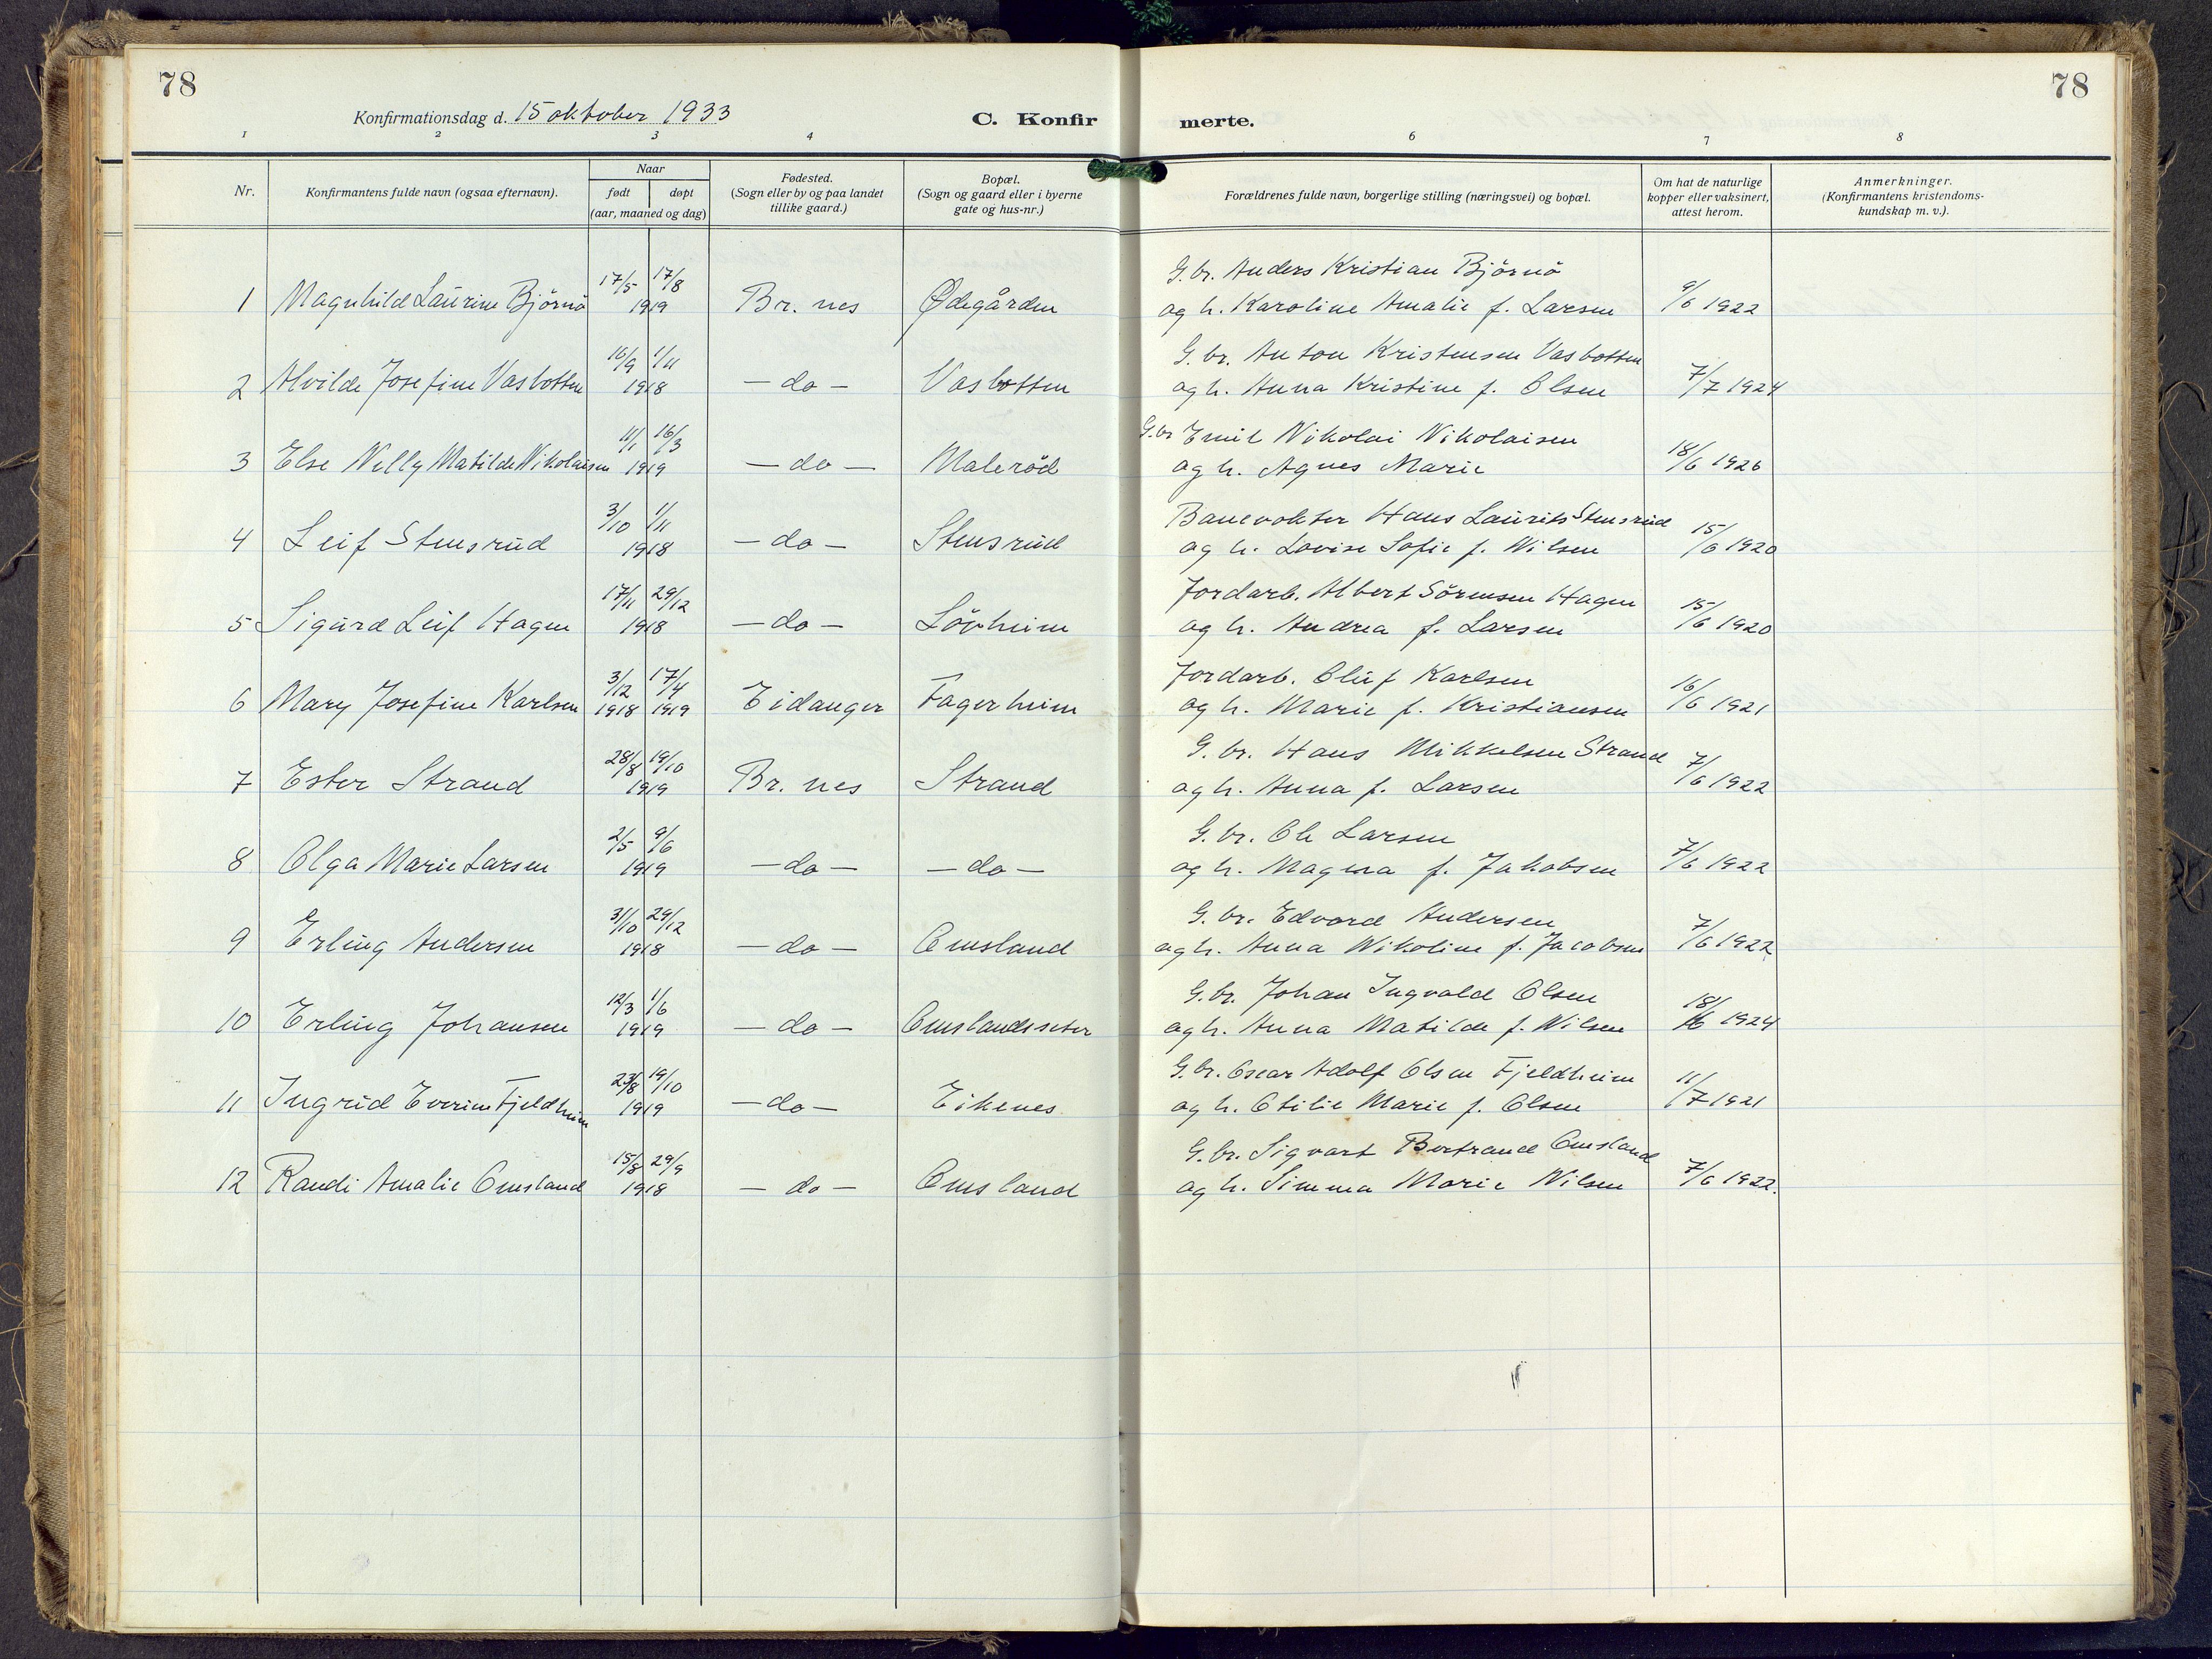 78
78
Konfirmationsdag d. 15 oktober 1933
C. Konfirmerte.
1 2 3 4 6 7 8
Nr.
Konfirmantens fulde navn (ogsaa efternavn).
Naar
født døpt
(aar, maaned og dag)
Fødested.
(Sogn eller by og paa landet
tillike gaard.)
Bopæl.
(Sogn og gaard eller i byerne
gate og hus-nr.)
Forældrenes fulde navn, borgerlige stilling (næringsvei) og bopæl.
Om hat de naturlige
kopper eller vaksinert,
attest herom.
Anmerkninger.
(Konfirmantens kristendoms-
kundskap m. v.).
17/5 17/8 G. br. Anders Kristian Björnö
1 Magnhild Laurine Björnö 1919 Br. nes Ødegården og h. Karoline Amalie f. Larsen 9/6 1922
16/9 1/11 G. br. Anton Kristensen Vasbotten
2 Alvilde Josefine Vasbotten 1918 - do - Vasbotten og h. Anna Kristine f. Olsen 7/7 1924
11/1 16/3 G. br Emil Nikolai Nikolaisen
3 Else Nelly Matilde Nikolaisen 1919 - do - Malerød og h. Agnes Marie 18/6 1926
3/10 1/11 Banevokter Hans Laurits Stensrud
4 Leif Stensrud 1918 - do - Stensrud og h. Lovise Sofie f. Nilsen 15/6 1920
17/11 29/12 Jordarb. Albert Sörensen Hagen
5 Sigurd Leif Hagen 1918 - do - Lövheim og h. Andrea f. Larsen 15/6 1920
3/12 17/4 Jordarb. Oluf Karlsen
6 Mary Josefine Karlsen 1918 1919 Eidanger Fagerheim og h. Marie f. Kristiansen 16/6 1921
28/8 19/10 G. br. Hans Mikkelsen Strand
7 Ester Strand 1919 Br. nes Strand og h. Anna f. Larsen 7/6 1922
2/5 9/6 G. br. Ole Larsen
8 Olga Marie Larsen 1919 - do - - do - og h. Magna f. Jakobsen 7/6 1922
31/10 29/12 G. br. Edvard Andersen
9 Erling Andersen 1918 - do - Omsland og h. Anna Nikoline f. Jacobsen 7/6 1922
12/3 1/6 G. br. Johan Ingvald Olsen
10 Erling Johansen 1919 - do - Omslandsseter og h. Anna Matilde f. Nilsen 18/6 1924
23/8 19/10 G. br. Oscar Adolf Olsen Fjeldheim
11 Ingrid Everine Fjeldheim 1919 - do - Eikenes og h. Otilie Marie f. Olsen 11/7 1921
15/8 29/9 G. br. Sigvart Bertrand Omsland
12 Randi Amalie Omsland 1918 - do - Omsland og h. Simma Marie Nilsen 7/6 1922.